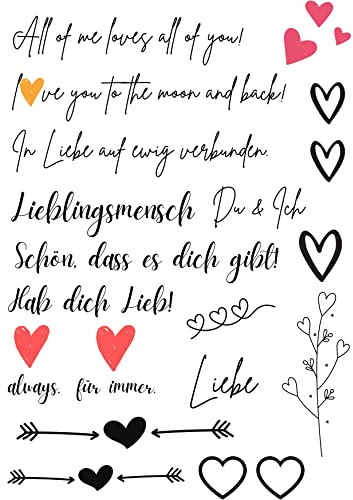 All of me loves all of you!
I love you to the moon and back!
In Liebe auf ewig verbunden.
Lieblingsmensch Du & Ich
Schön, dass es dich gibt!
Hab dich Lieb!
always. für immer.
Liebe